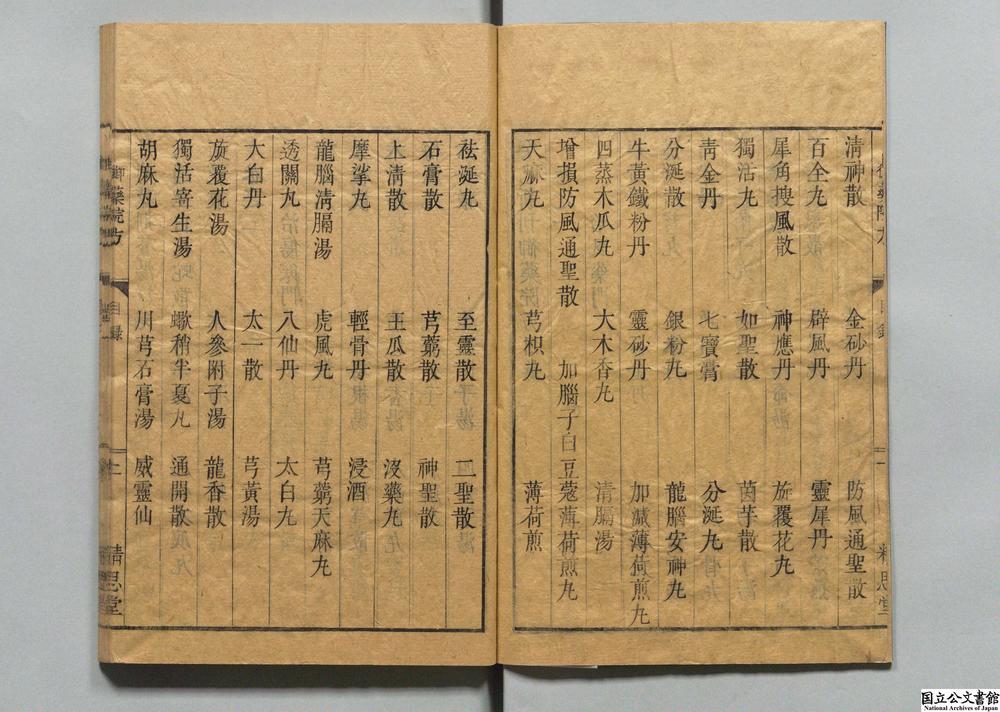 清神散 金砂丹 防風通聖散
百全丸 辟風丹 靈犀丹
犀角搜風散 神應丹 旋覆花丸
獨活丸 如聖散 茵芋散
青金丹 七寶膏 分涎丸
分涎散 銀粉丸 龍腦安神丸
牛黃鐵粉丹 靈砂丹 加減薄荷煎丸
四蒸木瓜丸 大木香丸 清膈湯
增損防風通聖散 加腦子白豆蔻薄荷煎丸
天麻丸 芎枳丸 薄荷煎
祛涎丸 至靈散 二聖散
石膏散 芎藭散 神聖散
上清散 王瓜散 沒藥丸
摩挲丸 輕骨丹 浸酒
龍腦清膈湯 虎風丸 芎藭天麻丸
透關丸 八仙丹 太白丸
大白丹 太一散 芎黃湯
旋覆花湯 人參附子湯 龍香散
獨活寄生湯 蠍梢半夏丸 通開散
胡麻丸 川芎石膏湯 威靈仙
御藥院方 目錄 二 精思堂
国立公文書館
National Archives of Japan